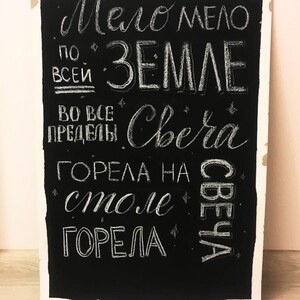 Мело МЕЛО
ПО ВСЕЙ ЗЕМЛЕ
ВО ВСЕ ПРЕДЕЛЫ Свеча
ГОРЕЛА НА
столе СВЕЧА
ГОРЕЛА